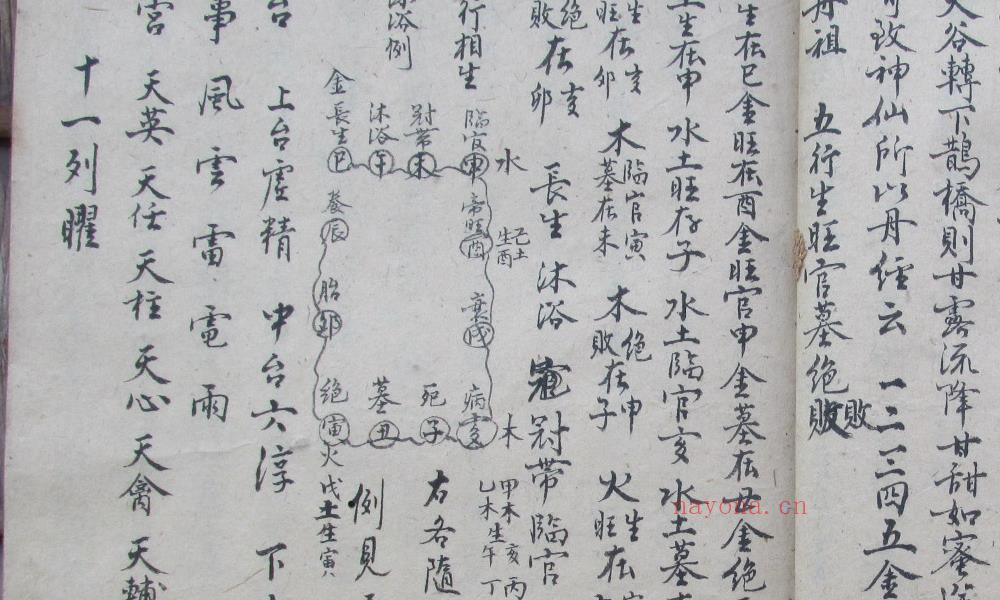 大谷轉下鵲橋則甘露流降甘甜如蜜
可致神仙所以丹經云 一二三四五金
丹祖 五行生旺官墓绝敗敗
生在巳金旺在酉金旺官申金墓在丑金绝
土生在申水土旺在子水土臨官亥水土墓
生在亥旺在卯 木臨官寅墓在未 木绝在申敗在子 火生旺在
绝在敗在卯 長生 沐浴 冠冠帶臨官
行相生
沐浴例
金長生巳
沐浴午
冠帶未
臨官申
水
帝旺酉
己土生酉
衰戌
病亥
木
甲木亥丙
乙木生午丁
死子
墓丑
绝寅
火戊土生寅
胎卯
養辰
右各隨
例見
台 上台虚精 中台六淳 下
事風雲雷電雨
宫 天英 天任 天柱 天心 天禽 天輔
十一列曜
nayona.cn